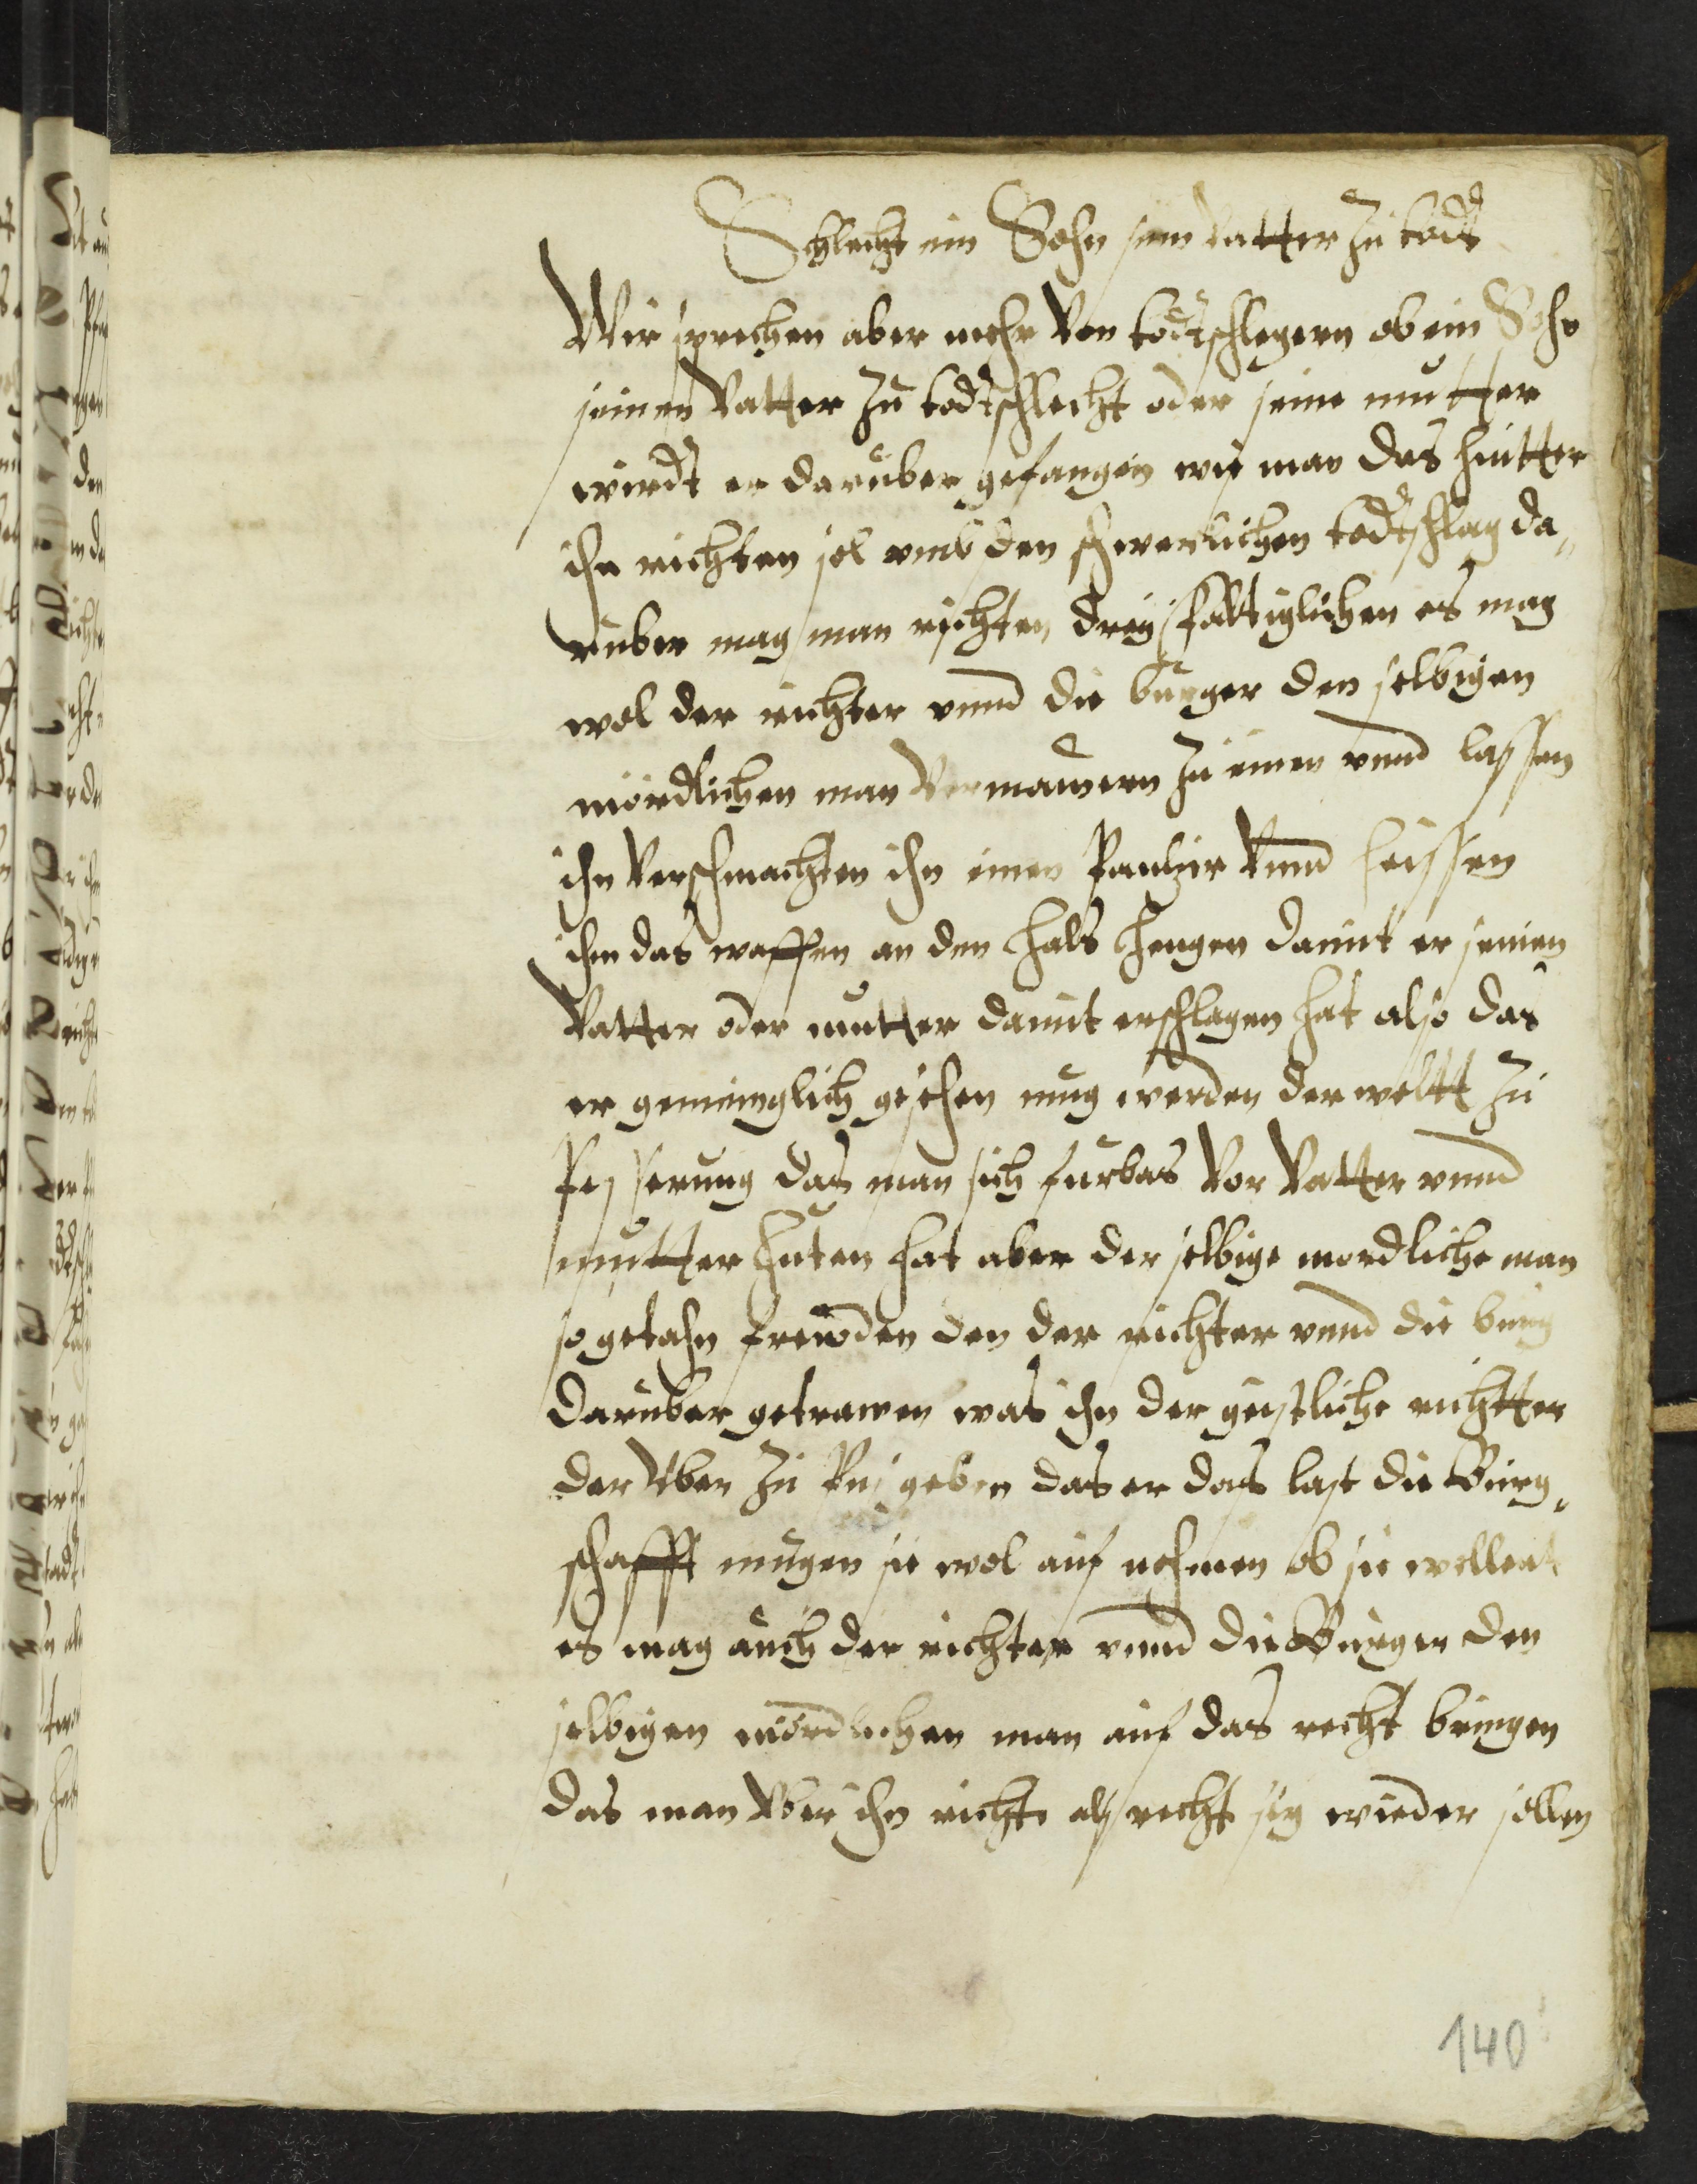 Schlecht ein Sohn sein vatter zu todt
Wir sprechen aber mehr von todtschlegern ob ein Sohn
seinen vatter zu todtschlecht oder seine mutter
wirdt er daruber gefangen wie man das hintter
ihn richten sol vmb den schwerlichen todtschlag da„
ruber mag man richten dreyfaltiglichen es mag
wol der richter vnnd die burger den selbigen
mördlichen man vermauren zu einen vnnd lassen
ihn verschmachten ihn einen Pantzir vnnd heissen
ihm das waffen an den hals hengen damit er seinen
vatter oder mutter damit erschlagen hat also das
er gemeinglich gesehen mug werden der weltt zu
Pesserung das man sich furbas vor vatter vnnd
mutter huten hat aber der selbige mordliche man
so getahn freunden den der richter vnnd die burg
daruber getrawen was ihn der geistliche richtter
der vber zu Pus geben das er das last die Burg„
schafft mugen sie wol auf nehmen ob sie wellent
es mag auch der richter vnnd die Burger den
selbigen mördlichen man auf das recht bringen
das man vber ihn richte als recht sey wieder sollen
140